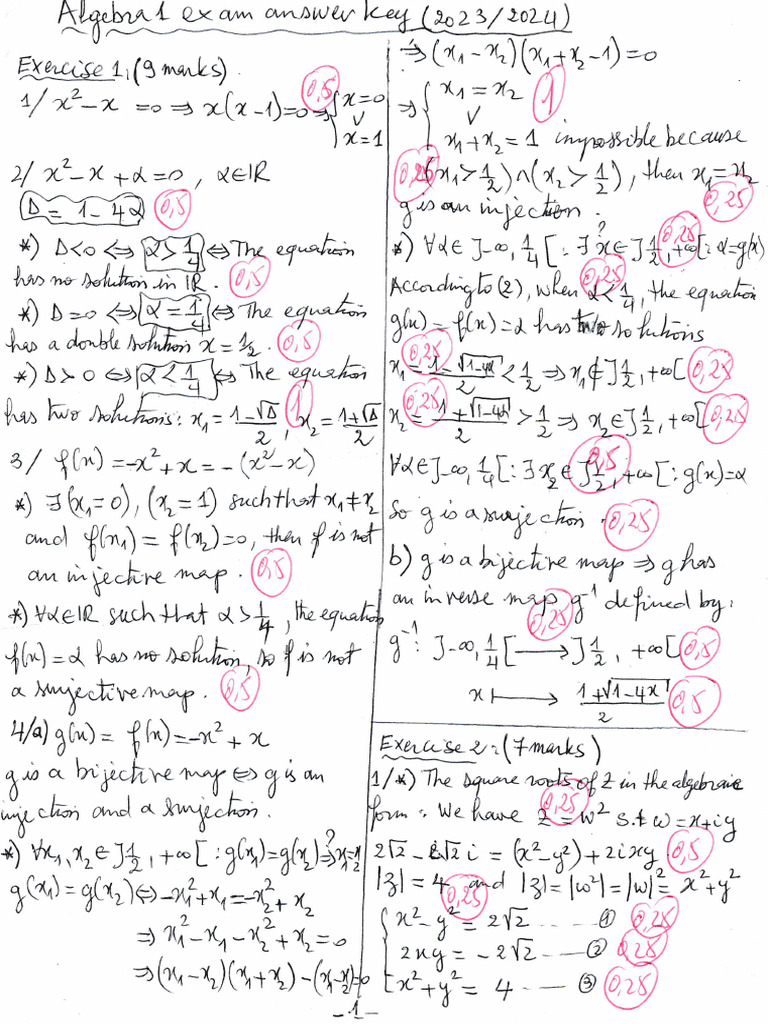 Algebra 1 exam answer key (2023/2024)
Exercise 1: (9 marks).
1/ x² - x = 0 ⇒ x(x-1) = 0 ⇒ { x = 0 0,5
∨
x = 1
2/ x² - x + α = 0 , α ∈ IR
Δ = 1 - 4α 0,5
*) Δ < 0 ⇔ α > 1/4 ⇔ The equation
has no solution in IR. 0,5
*) Δ = 0 ⇔ α = 1/4 ⇔ The equation
has a double solution x = 1/2. 0,5
*) Δ > 0 ⇔ α < 1/4 ⇔ The equation
has two solutions: x₁ = (1-√Δ)/2 , x₂ = (1+√Δ)/2 1
3/ f(x) = -x² + x = -(x² - x)
*) ∃(x₁=0), (x₂=1) such that x₁ ≠ x₂
and f(x₁) = f(x₂) = 0, then f is not
an injective map. 0,5
*) ∀α ∈ IR such that α > 1/4, the equation
f(x) = α has no solution, so f is not
a surjective map. 0,5
4/a) g(x) = f(x) = -x² + x
g is a bijective map ⇔ g is an
injection and a surjection.
*) ∀x₁, x₂ ∈ ]1/2, +∞[ : g(x₁) = g(x₂) ⇒? x₁ = x₂
g(x₁) = g(x₂) ⇔ -x₁² + x₁ = -x₂² + x₂
⇒ x₁² - x₁ - x₂² + x₂ = 0
⇒ (x₁-x₂)(x₁+x₂) - (x₁-x₂) = 0
⇒ (x₁-x₂)(x₁+x₂-1) = 0
⇒ { x₁ = x₂ 1
∨
x₁ + x₂ = 1 impossible because
0,25 (x₁ > 1/2) ∧ (x₂ > 1/2), then x₁ = x₂
g is an injection. 0,25
*) ∀α ∈ ]-∞, 1/4[ : ∃? x ∈ ]1/2, +∞[ : α = g(x) 0,25
According to (2), when α < 1/4, the equation 0,25
g(x) = f(x) = α has two solutions
x₁ = (1-√(1-4α))/2 < 1/2 ⇒ x₁ ∉ ]1/2, +∞[ 0,25 0,25
x₂ = (1+√(1-4α))/2 > 1/2 ⇒ x₂ ∈ ]1/2, +∞[ 0,25 0,25
∀α ∈ ]-∞, 1/4[ : ∃x₂ ∈ ]1/2, +∞[ : g(x) = α 0,5
So g is a surjection. 0,25
b) g is a bijective map ⇒ g has
an inverse map g⁻¹ defined by: 0,25
g⁻¹ : ]-∞, 1/4[ ⟶ ]1/2, +∞[ 0,5
x ⟼ (1+√(1-4x))/2 0,5
Exercise 2: (7 marks)
1/ *) The square roots of Z in the algebraic
form: We have Z = w² s.t w = x+iy 0,25
2√2 - 2√2 i = (x² - y²) + 2ixy 0,5
|z| = 4 and |z| = |w²| = |w|² = x² + y² 0,25
{ x² - y² = 2√2 ...... ① 0,25
2xy = -2√2 ..... ② 0,25
x² + y² = 4 ..... ③ 0,25
-1-